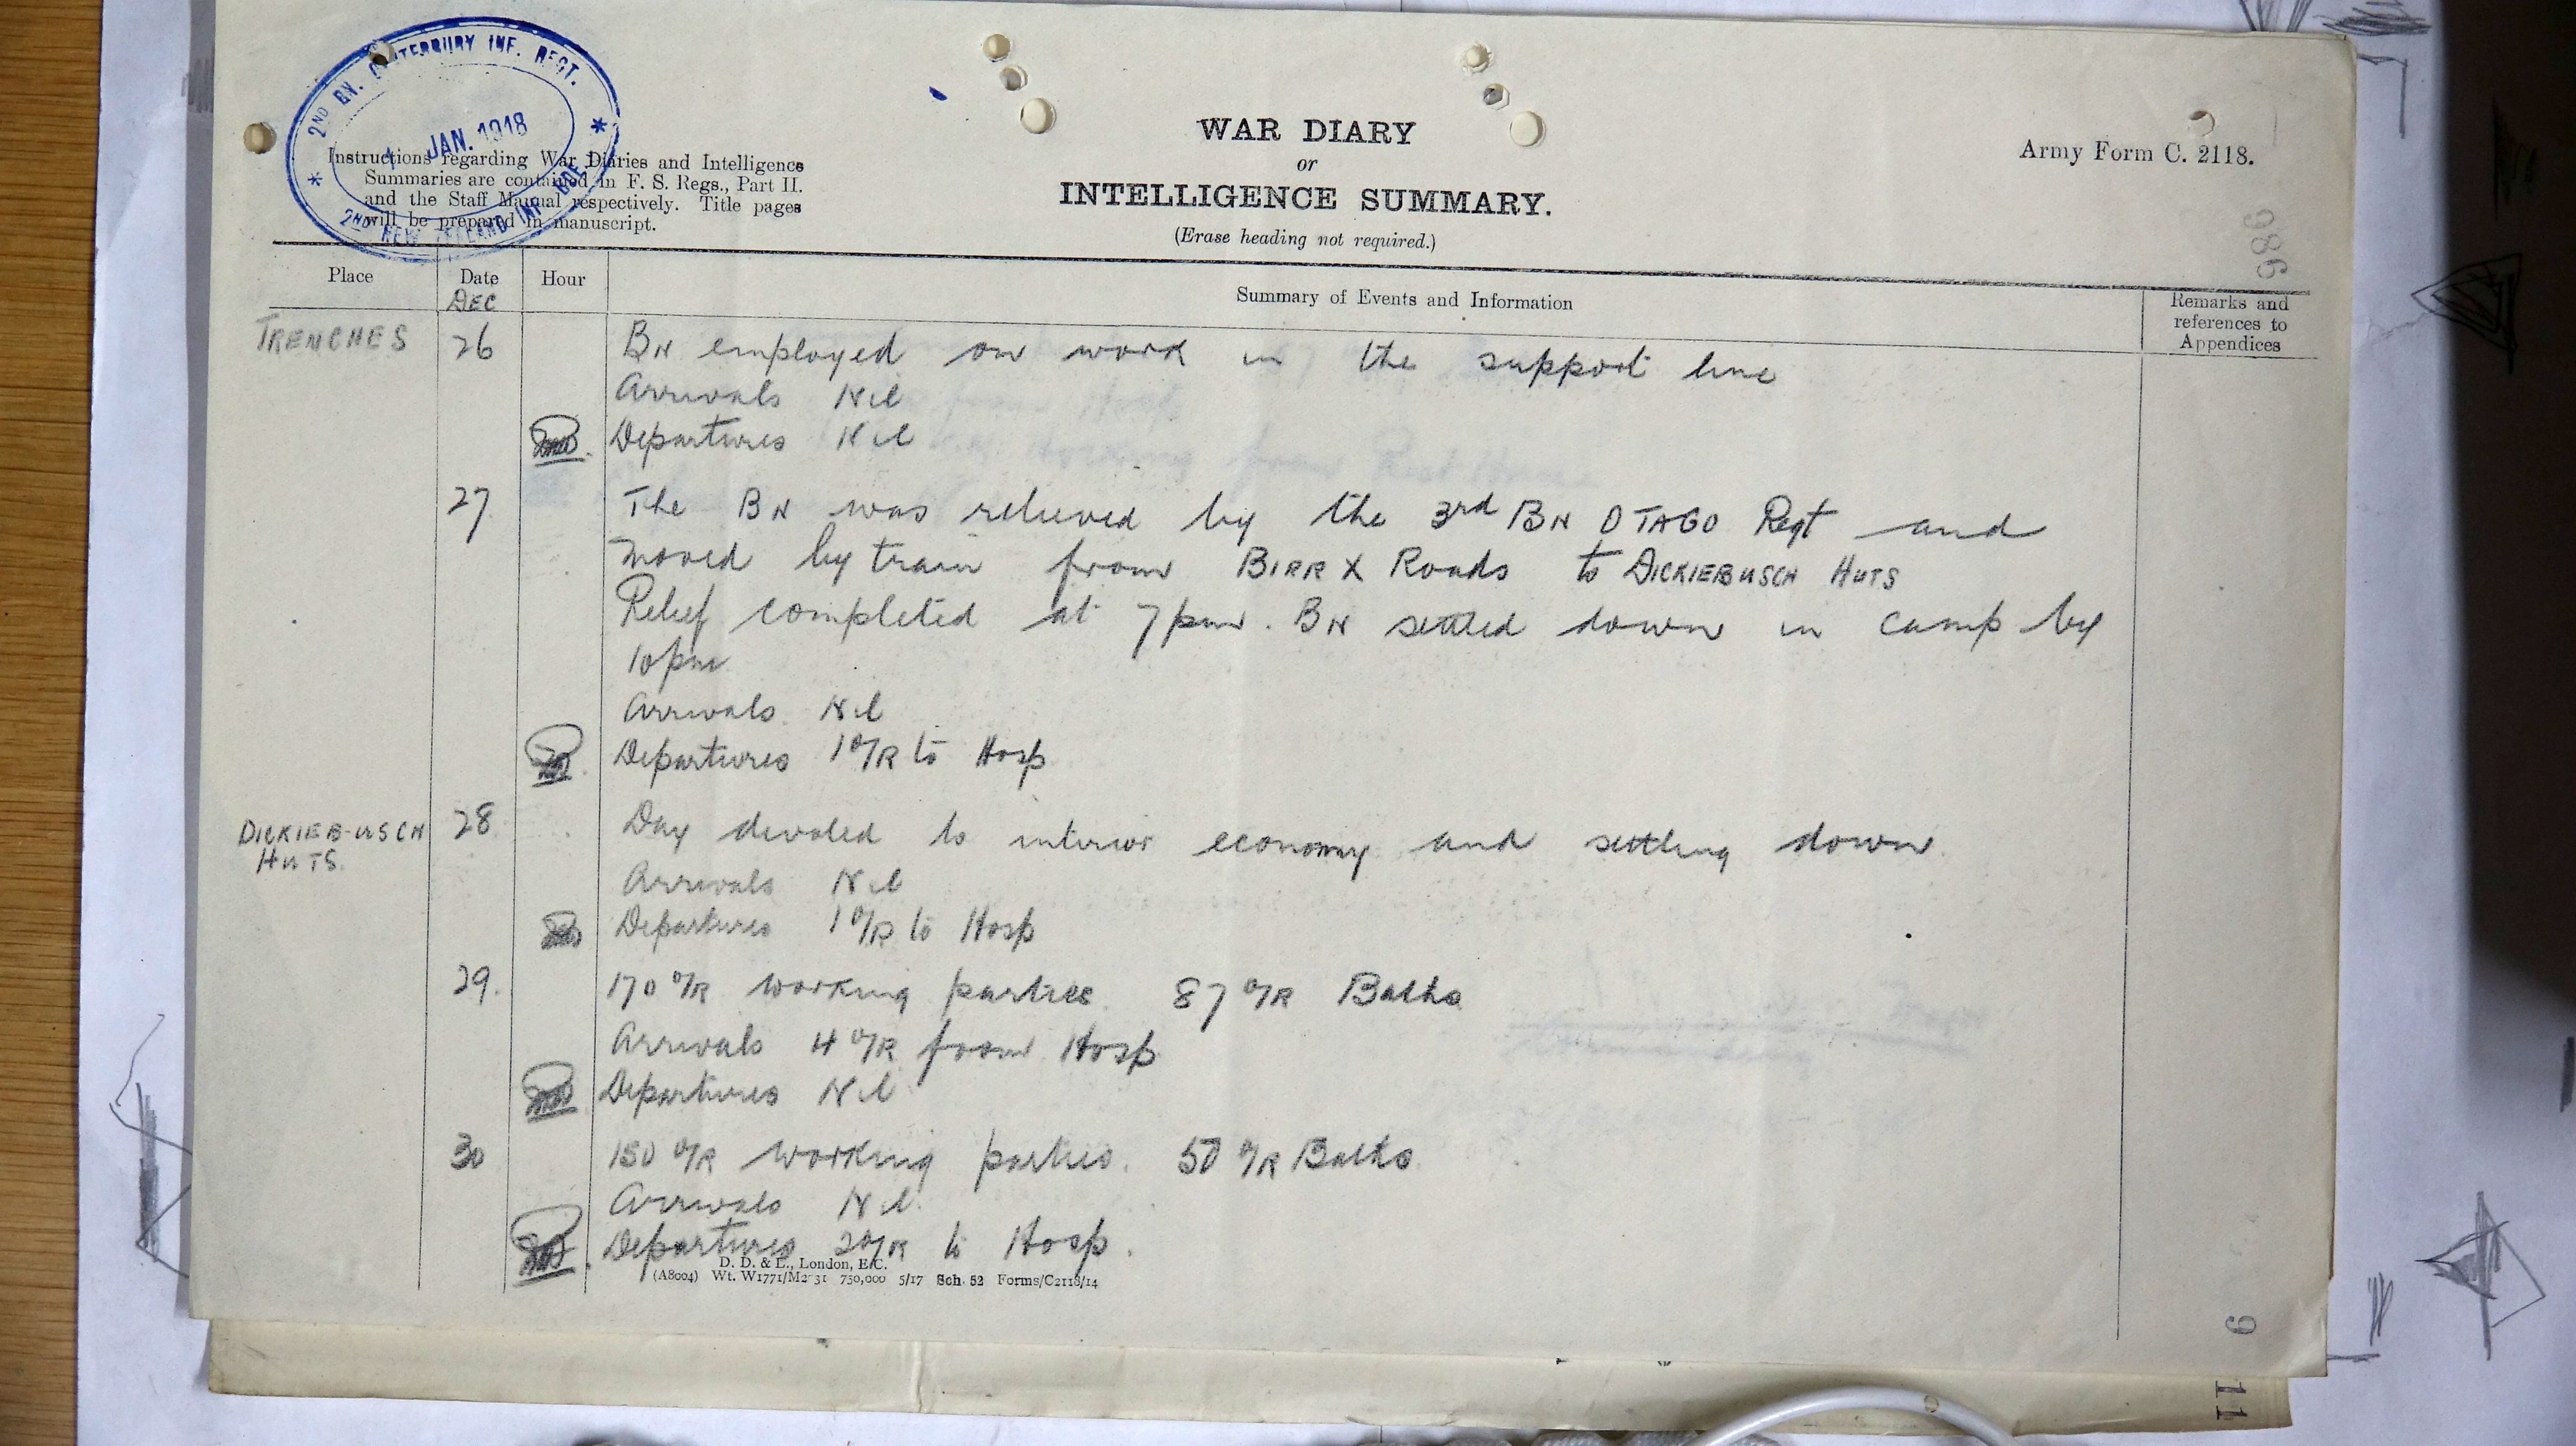 2ND BN. CANTERBURY INF. REGT.
JAN. 1918
2ND NEW ZEALAND INF. BDE.
Instructions regarding War Diaries and Intelligence
Summaries are contained in F. S. Regs., Part II.
and the Staff Manual respectively. Title pages
will be prepared in manuscript.
WAR DIARY
or
INTELLIGENCE SUMMARY.
(Erase heading not required.)
Army Form C. 2118.
986
Place Date Hour Summary of Events and Information Remarks and references to Appendices
DEC
TRENCHES 26 BN employed on work in the support line
Arrivals Nil
Departures Nil
27 The BN was relieved by the 3rd BN OTAGO Regt and
moved by train from BIRR X Roads to DICKIEBUSCH HUTS
Relief completed at 7pm. BN settled down in camp by
10pm
Arrivals Nil
Departures 1 O/R to Hosp
DICKIEBUSCH HUTS. 28 Day devoted to interior economy and settling down
Arrivals Nil
Departures 1 O/R to Hosp
29. 170 O/R working parties 87 O/R Baths
Arrivals 4 O/R from Hosp
Departures Nil
30 150 O/R working parties. 50 O/R Baths
Arrivals Nil
Departures 2 O/R to Hosp.
D. D. & L., London, E.C.
(A8004) Wt. W1771/M2031 750,000 5/17 Sch. 52 Forms/C2118/14
9
11